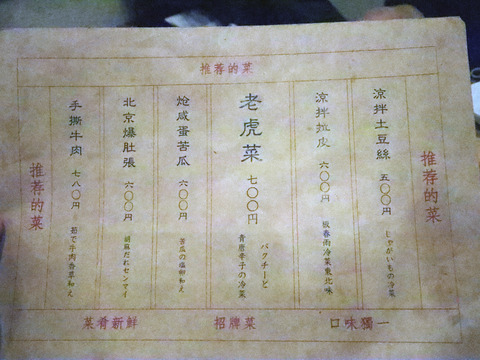 推荐的菜
推荐的菜
凉拌土豆絲 五〇〇円
じゃがいもの冷菜
凉拌拉皮 六〇〇円
板春雨冷菜東北味
老虎菜 七〇〇円
パクチーと
青唐辛子の冷菜
炝咸蛋苦瓜 六〇〇円
苦瓜の塩卵和え
北京爆肚張 六〇〇円
胡麻だれセンマイ
手撕牛肉 七八〇円
茹で牛肉香草和え
推荐的菜
菜肴新鮮
招牌菜
口味獨一